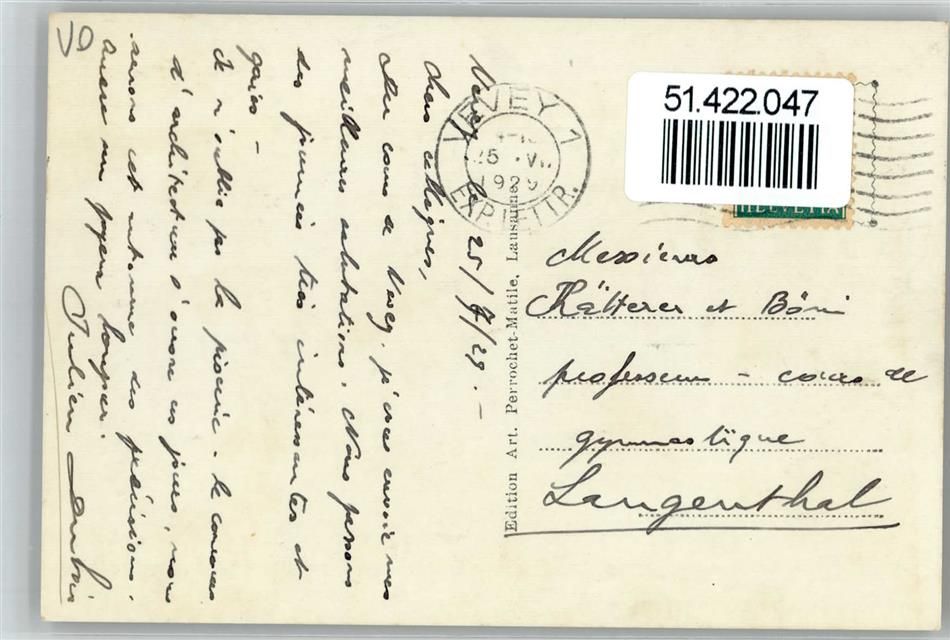 Vevey, le 25/7/29. -
Chers collègues,
Du cours de Vevey, j'vous envoie mes
meilleures salutations. Nous passons
des journées très intéressantes et
gaies -
Je n'oublie pas la piscine - le concours
d'architecture s'ouvre ces jours, nous
aurons cet automne des précisions.
avec un joyeux
Julien
VEVEY 1
25 VII
EXP. LETTR.
51.422.047
HELVETIA
Edition Art. Perrochet-Matile, Lausanne
Messieurs
Kätterer et Böni
professeurs - cours de
gymnastique
Langenthal